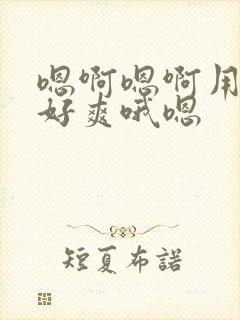 嗯啊嗯啊用
好爽哦嗯
短夏布諾